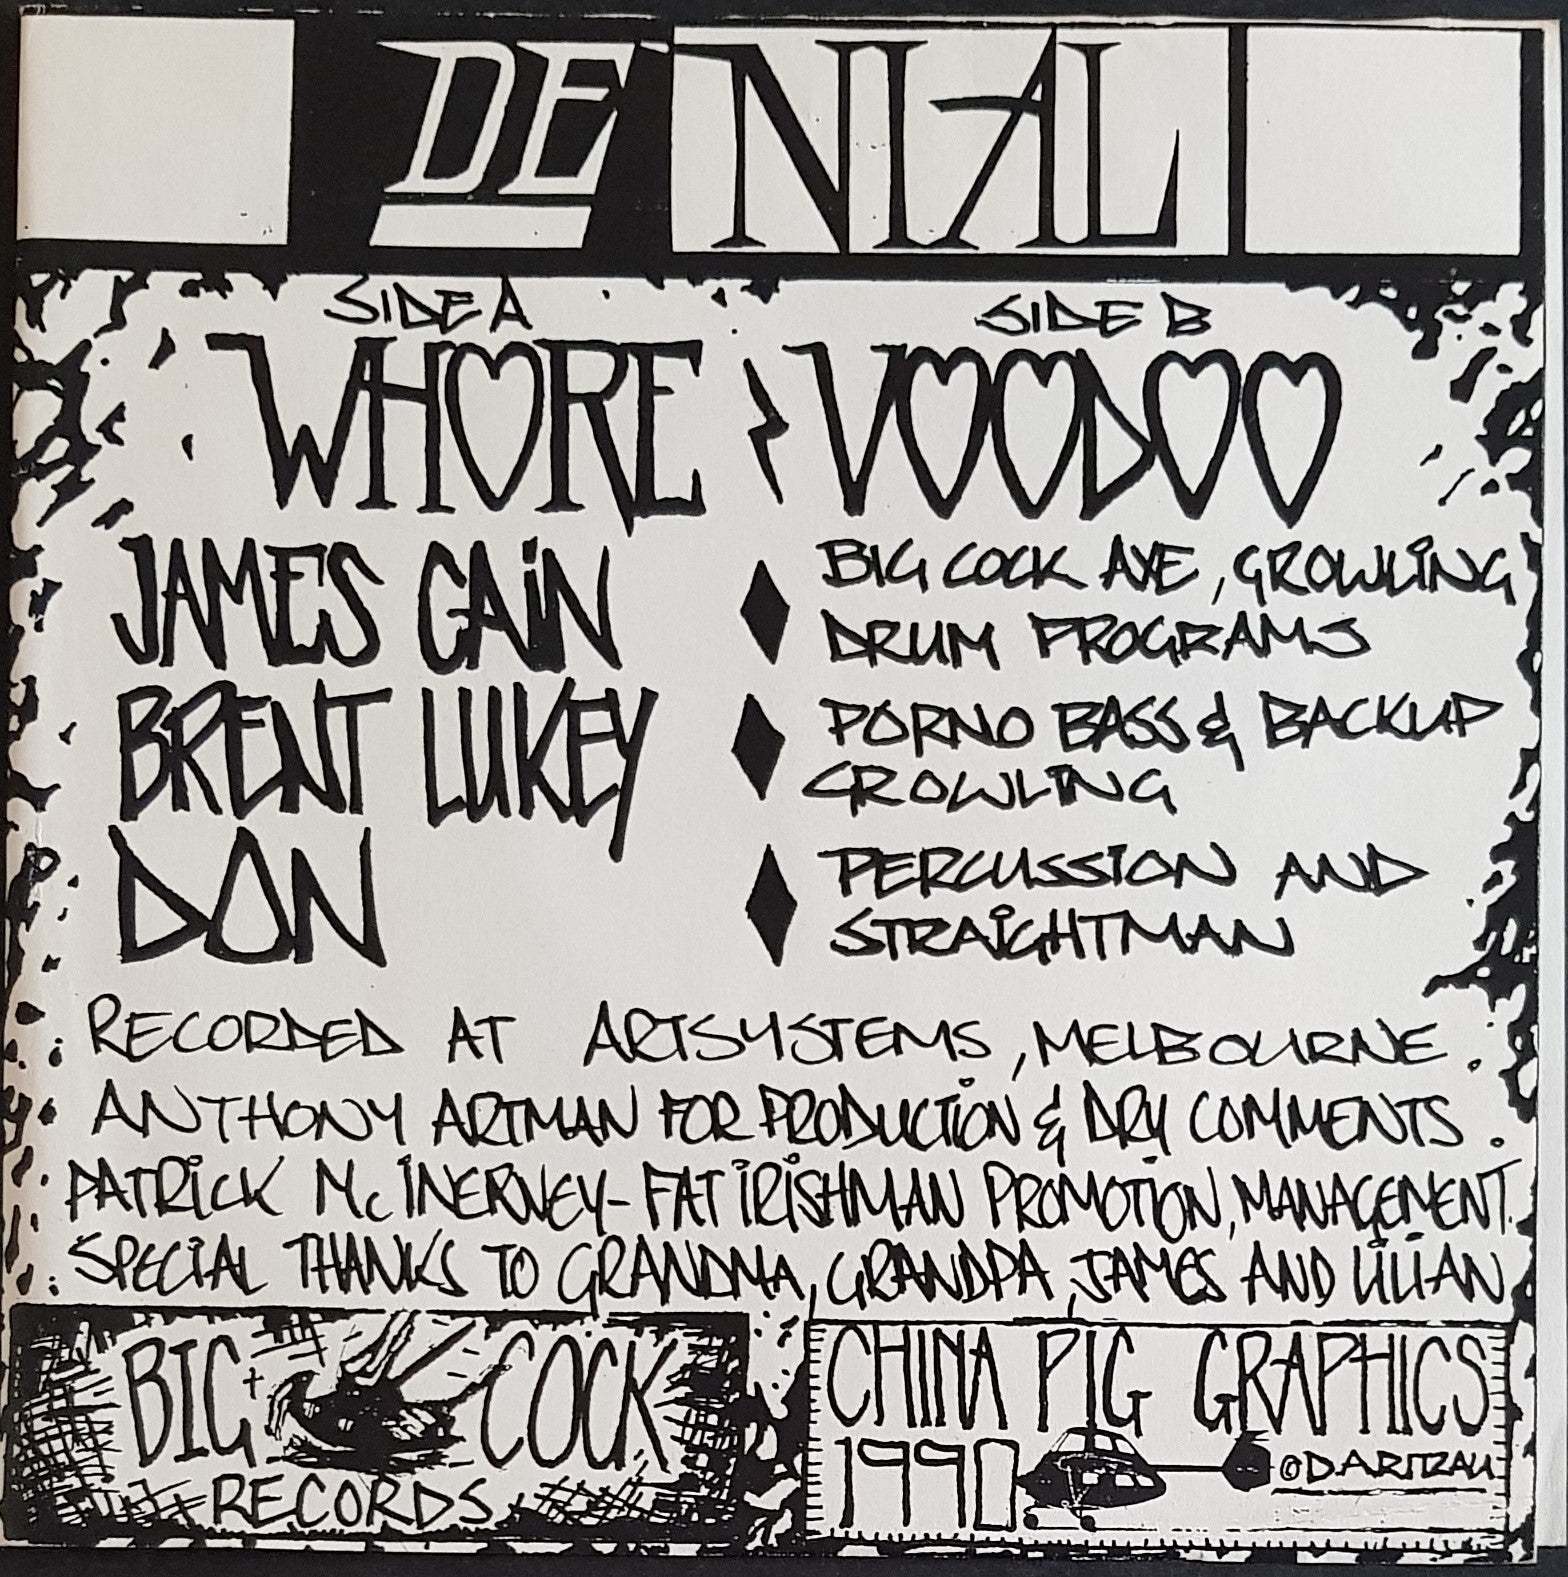 DE NIAL
SIDE A
WHORE
SIDE B
VOODOO
JAMES GAiN
BIG COCK AXE, GROWLiNG
DRUM PROGRAMS
BRENT LUKEY
PORNO BASS & BACKUP
GROWLING
DON
PERCUSSION AND
STRAiGHTMAN
RECORDED AT ARTSYSTEMS, MELBOURNE.
ANTHONY ARTMAN FOR PRODUCTiON & DRY COMMENTS.
PATRiCK Mc iNERNEY- FAT iRiSHMAN PROMOTiON, MANAGEMENT.
SPECiAL THANKS TO GRANDMA, GRANDPA, JAMES AND LiLiAN
BIG COCK
RECORDS
CHINA PIG GRAPHICS
1990
© D.A.RITZAU